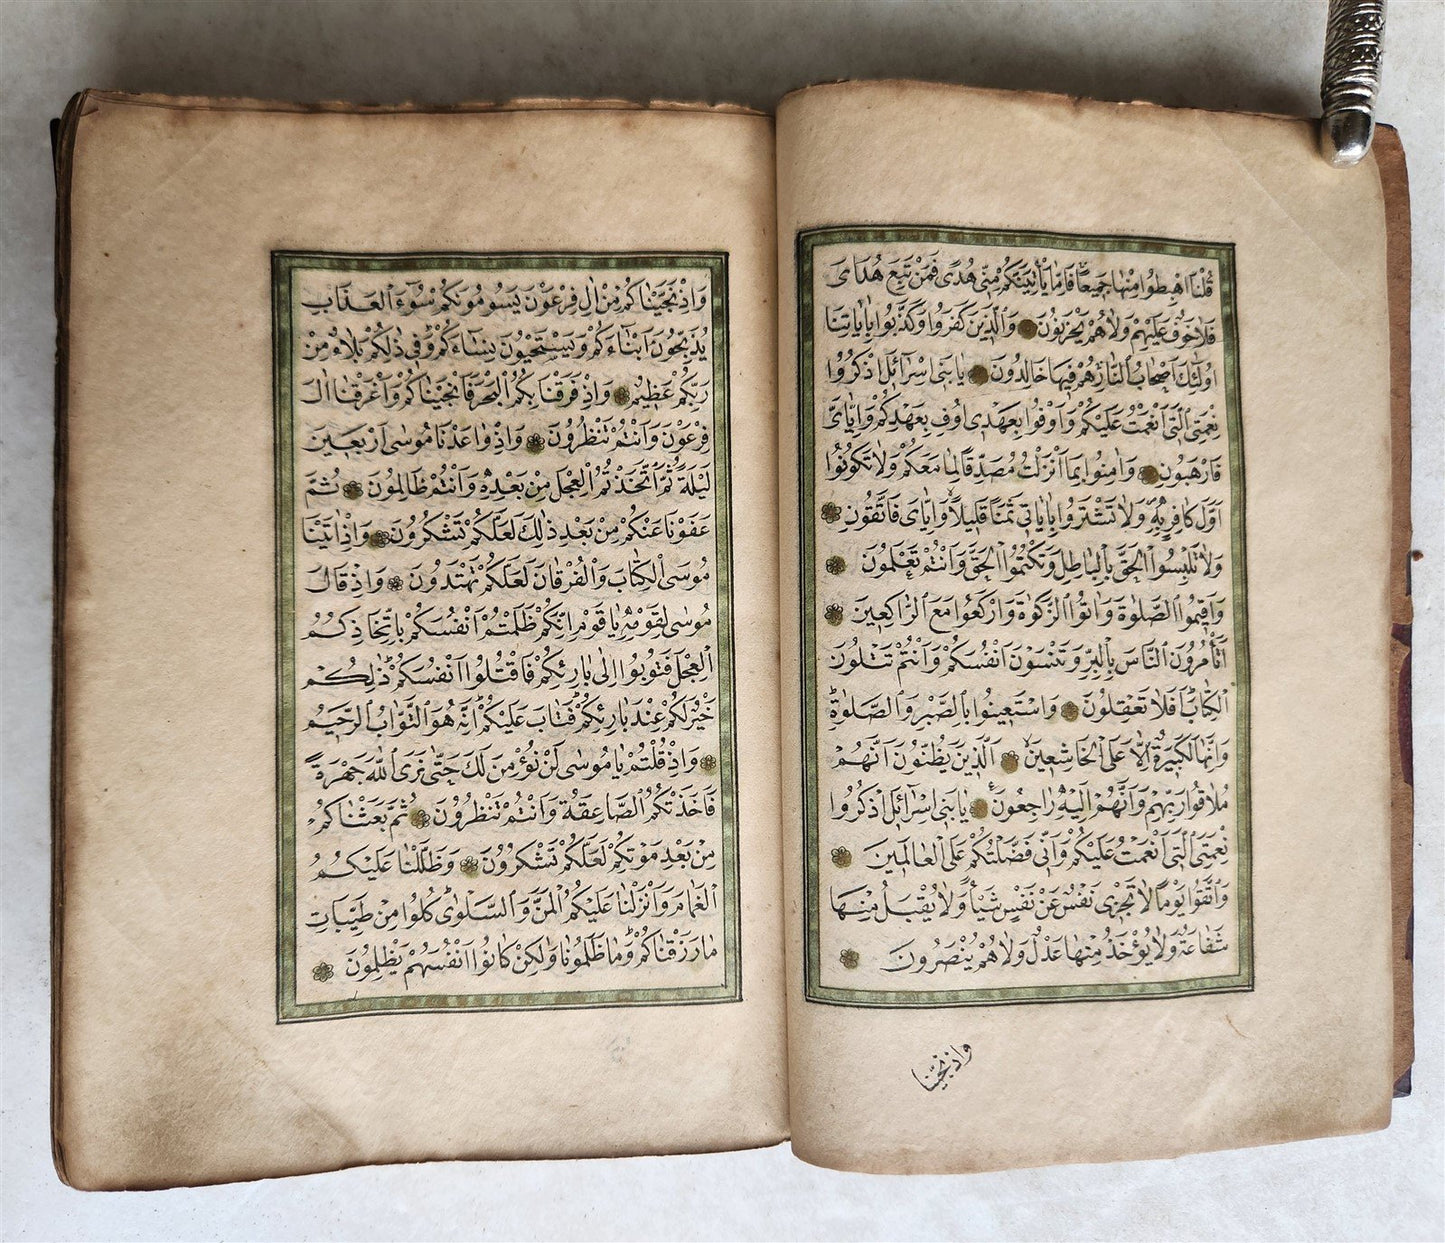 قُلْنَا اهْبِطُوا مِنْهَا جَمِيعًا فَاِمَّا يَأْتِيَنَّكُمْ مِنِّى هُدًى فَمَنْ تَبِعَ هُدَاىَ
فَلَا خَوْفٌ عَلَيْهِمْ وَلَا هُمْ يَحْزَنُونَ وَالَّذِينَ كَفَرُوا وَكَذَّبُوا بِاٰيَاتِنَا
اُولٰٓئِكَ اَصْحَابُ النَّارِ هُمْ فِيهَا خَالِدُونَ يَا بَنِى اِسْرَآئِلَ اذْكُرُوا
نِعْمَتِىَ الَّتِى اَنْعَمْتُ عَلَيْكُمْ وَاَوْفُوا بِعَهْدِى اُوفِ بِعَهْدِكُمْ وَاِيَّاىَ
فَارْهَبُونِ وَاٰمِنُوا بِمَا اَنْزَلْتُ مُصَدِّقًا لِمَا مَعَكُمْ وَلَا تَكُونُوا
اَوَّلَ كَافِرٍ بِهِ وَلَا تَشْتَرُوا بِاٰيَاتِى ثَمَنًا قَلِيلًا وَاِيَّاىَ فَاتَّقُونِ
وَلَا تَلْبِسُوا الْحَقَّ بِالْبَاطِلِ وَتَكْتُمُوا الْحَقَّ وَاَنْتُمْ تَعْلَمُونَ
وَاَقِيمُوا الصَّلٰوةَ وَاٰتُوا الزَّكٰوةَ وَارْكَعُوا مَعَ الرَّاكِعِينَ
اَتَأْمُرُونَ النَّاسَ بِالْبِرِّ وَتَنْسَوْنَ اَنْفُسَكُمْ وَاَنْتُمْ تَتْلُونَ
الْكِتَابَ اَفَلَا تَعْقِلُونَ وَاسْتَعِينُوا بِالصَّبْرِ وَالصَّلٰوةِ
وَاِنَّهَا لَكَبِيرَةٌ اِلَّا عَلَى الْخَاشِعِينَ اَلَّذِينَ يَظُنُّونَ اَنَّهُمْ
مُلَاقُوا رَبِّهِمْ وَاَنَّهُمْ اِلَيْهِ رَاجِعُونَ يَا بَنِى اِسْرَآئِلَ اذْكُرُوا
نِعْمَتِىَ الَّتِى اَنْعَمْتُ عَلَيْكُمْ وَاَنِّى فَضَّلْتُكُمْ عَلَى الْعَالَمِينَ
وَاتَّقُوا يَوْمًا لَا تَجْزِى نَفْسٌ عَنْ نَفْسٍ شَيْأً وَلَا يُقْبَلُ مِنْهَا
شَفَاعَةٌ وَلَا يُؤْخَذُ مِنْهَا عَدْلٌ وَلَا هُمْ يُنْصَرُونَ
واذ نجينا
وَاِذْ نَجَّيْنَاكُمْ مِنْ اٰلِ فِرْعَوْنَ يَسُومُونَكُمْ سُوٓءَ الْعَذَابِ
يُذَبِّحُونَ اَبْنَاءَكُمْ وَيَسْتَحْيُونَ نِسَاءَكُمْ وَفِى ذٰلِكُمْ بَلَاءٌ مِنْ
رَبِّكُمْ عَظِيمٌ وَاِذْ فَرَقْنَا بِكُمُ الْبَحْرَ فَاَنْجَيْنَاكُمْ وَاَغْرَقْنَا اٰلَ
فِرْعَوْنَ وَاَنْتُمْ تَنْظُرُونَ وَاِذْ وَاعَدْنَا مُوسٰى اَرْبَعِينَ
لَيْلَةً ثُمَّ اتَّخَذْتُمُ الْعِجْلَ مِنْ بَعْدِهِ وَاَنْتُمْ ظَالِمُونَ ثُمَّ
عَفَوْنَا عَنْكُمْ مِنْ بَعْدِ ذٰلِكَ لَعَلَّكُمْ تَشْكُرُونَ وَاِذْ اٰتَيْنَا
مُوسَى الْكِتَابَ وَالْفُرْقَانَ لَعَلَّكُمْ تَهْتَدُونَ وَاِذْ قَالَ
مُوسٰى لِقَوْمِهِ يَا قَوْمِ اِنَّكُمْ ظَلَمْتُمْ اَنْفُسَكُمْ بِاتِّخَاذِكُمُ
الْعِجْلَ فَتُوبُوا اِلٰى بَارِئِكُمْ فَاقْتُلُوا اَنْفُسَكُمْ ذٰلِكُمْ
خَيْرٌ لَكُمْ عِنْدَ بَارِئِكُمْ فَتَابَ عَلَيْكُمْ اِنَّهُ هُوَ التَّوَّابُ الرَّحِيمُ
وَاِذْ قُلْتُمْ يَا مُوسٰى لَنْ نُؤْمِنَ لَكَ حَتّٰى نَرَى اللّٰهَ جَهْرَةً
فَاَخَذَتْكُمُ الصَّاعِقَةُ وَاَنْتُمْ تَنْظُرُونَ ثُمَّ بَعَثْنَاكُمْ
مِنْ بَعْدِ مَوْتِكُمْ لَعَلَّكُمْ تَشْكُرُونَ وَظَلَّلْنَا عَلَيْكُمُ
الْغَمَامَ وَاَنْزَلْنَا عَلَيْكُمُ الْمَنَّ وَالسَّلْوٰى كُلُوا مِنْ طَيِّبَاتِ
مَا رَزَقْنَاكُمْ وَمَا ظَلَمُونَا وَلٰكِنْ كَانُوا اَنْفُسَهُمْ يَظْلِمُونَ